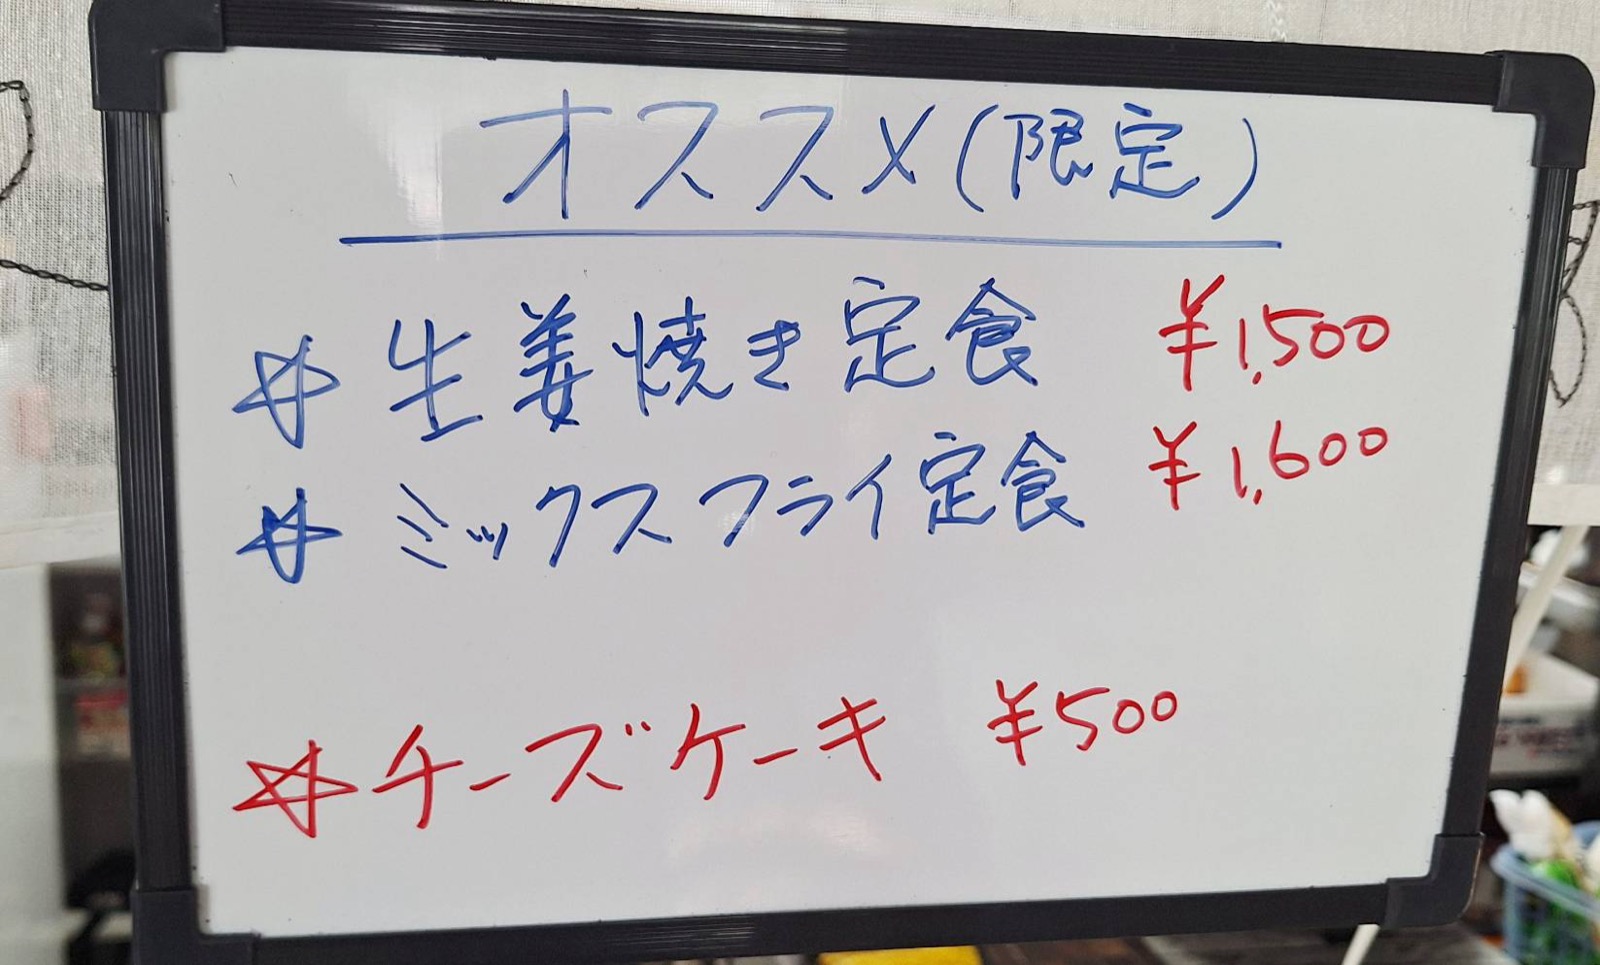 オススメ(限定)
☆ 生姜焼き定食 ¥1,500
☆ ミックスフライ定食 ¥1,600
☆ チーズケーキ ¥500